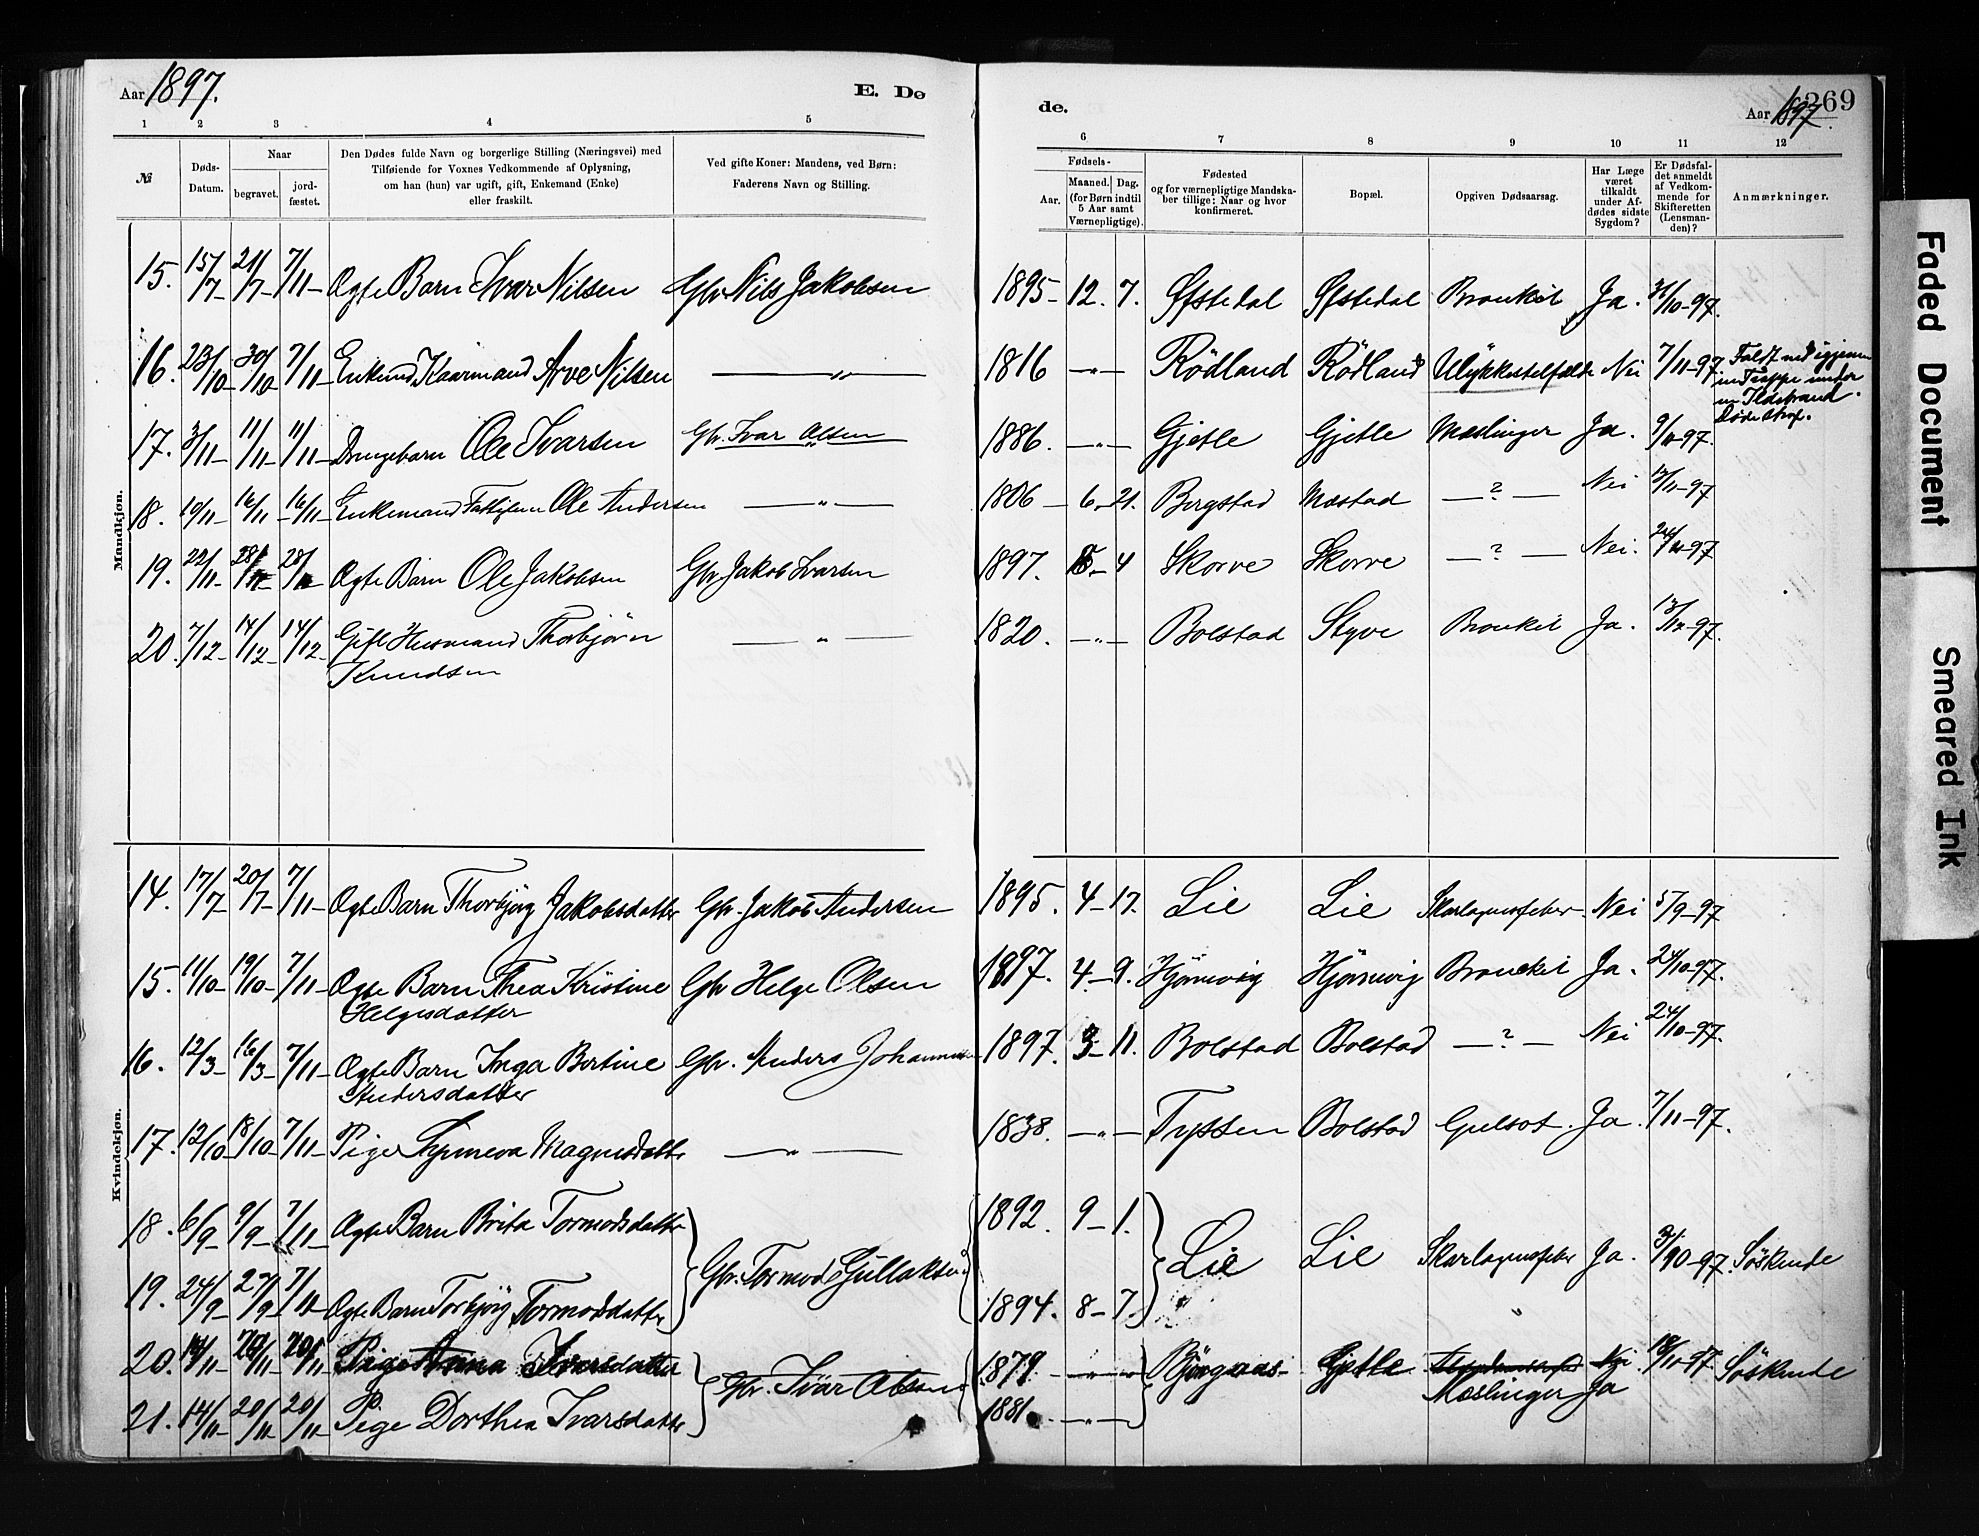 Aar 1897.
E. Dø
de.
Aar 1897.
269
1 2 3 4 5
6 7 8 9 10 11 12
№
Døds-
Datum.
Naar
begravet.
jord-
fæstet.
Den Dødes fulde Navn og borgerlige Stilling (Næringsvei) med
Tilføiende for Voxnes Vedkommende af Oplysning,
om han (hun) var ugift, gift, Enkemand (Enke)
eller fraskilt.
Ved gifte Koner: Mandens, ved Børn:
Faderens Navn og Stilling.
Fødsels-
Aar.
Maaned. Dag.
(for Børn indtil
5 Aar samt
Værnepligtige).
Fødested
og for værnepligtige Mandska-
ber tillige: Naar og hvor
konfirmeret.
Bopæl.
Opgiven Dødsaarsag.
Har Læge
været
tilkaldt
under Af-
dødes sidste
Sygdom?
Er Dødsfal-
det anmeldt
af Vedkom-
mende for
Skifteretten
(Lensman-
den)?
Anmærkninger.
Mandkjøn.
15. 15/7- 21/7- 7/11- Ægte Barn Ivar Nilsen Gbr Nils Jakobsen 1895- 12. 7. Øfstedal Øfstedal Bronkit Ja. 31/10-97.
16. 23/10- 30/10 7/11- Enkemd Kaarmand Arve Nilsen —"— 1816 —"— Rödland Rödland Ulykkestilfælde Nei 7/11-97 Faldt ned igjennem
en Trappe under
en Ildebrand.
Døde strax.
17. 3/11- 11/11- 11/11- Drengebarn Ole Ivarsen Gbr. Ivar Olsen 1886. —"— Gjetle Gjetle Mæslinger Ja. 9/11-97.
18. 10/11- 16/11- 16/11- Enkemand Fattiglem Ole Andersen —"— 1806 — 6-21. Bergstad Mestad —?— Nei 13/11-97
19. 22/11- 28/11- 28/11 Ægte Barn Ole Jakobsen Gbr Jakob Ivarsen 1897. 5- 4 Skorve Skorve —?— Nei. 24/11-97
20. 7/12- 14/12- 14/12- Gift Husmand Thorbjørn
Knudsen —"— 1820. —"— Bolstad Styve Bronkit Ja. 13/12-97.
Kvindekjøn.
14. 17/7- 20/7- 7/11- Ægte Barn Thorbjörg Jakobsdatter Gbr. Jakob Andersen 1895. 4-17. Lie Lie Skarlagensfeber Nei 5/9-97
15. 11/10- 19/10- 7/11- Ægte Barn Thea Kristine
Helgesdatter Gbr Helge Olsen 1897. 4-9. Hjörnevig Hjörnevig Bronckit Ja. 24/10-97.
16. 12/3- 16/3- 7/11- Ægte Barn Inga Bertine
Andersdatter Gbr. Anders Johannessen 1897. 3-11. Bolstad Bolstad —?— Nei 24/10-97.
17. 12/10- 18/10- 7/11- Pige Synneva Magnesdatter —"— 1838. —"— Tyssen Bolstad Gulsot. Ja. 7/11-97.
18. 6/9- 9/9- 7/11- Ægte Barn Brita Tormodsdatter Gbr. Tormod Gullaksen 1892. 9-1. Lie Lie Skarlagensfeber Ja. 3/10-97. Söskende
19. 24/9- 27/9- 7/11 Ægte Barn Torbjörg Tormodsdatter 1894. 8-7. " "
20. 14/11- 20/11- 20/11- Pige Anna Ivarsdatter Gbr. Ivar Olsen 1879. —"— Gjetle Nei 18/11-97. Söskende
21. 14/11- 20/11- 20/11- Pige Dorthea Ivarsdatter 1881. —"— Mæslinger Ja
Faded Document
Smeared Ink